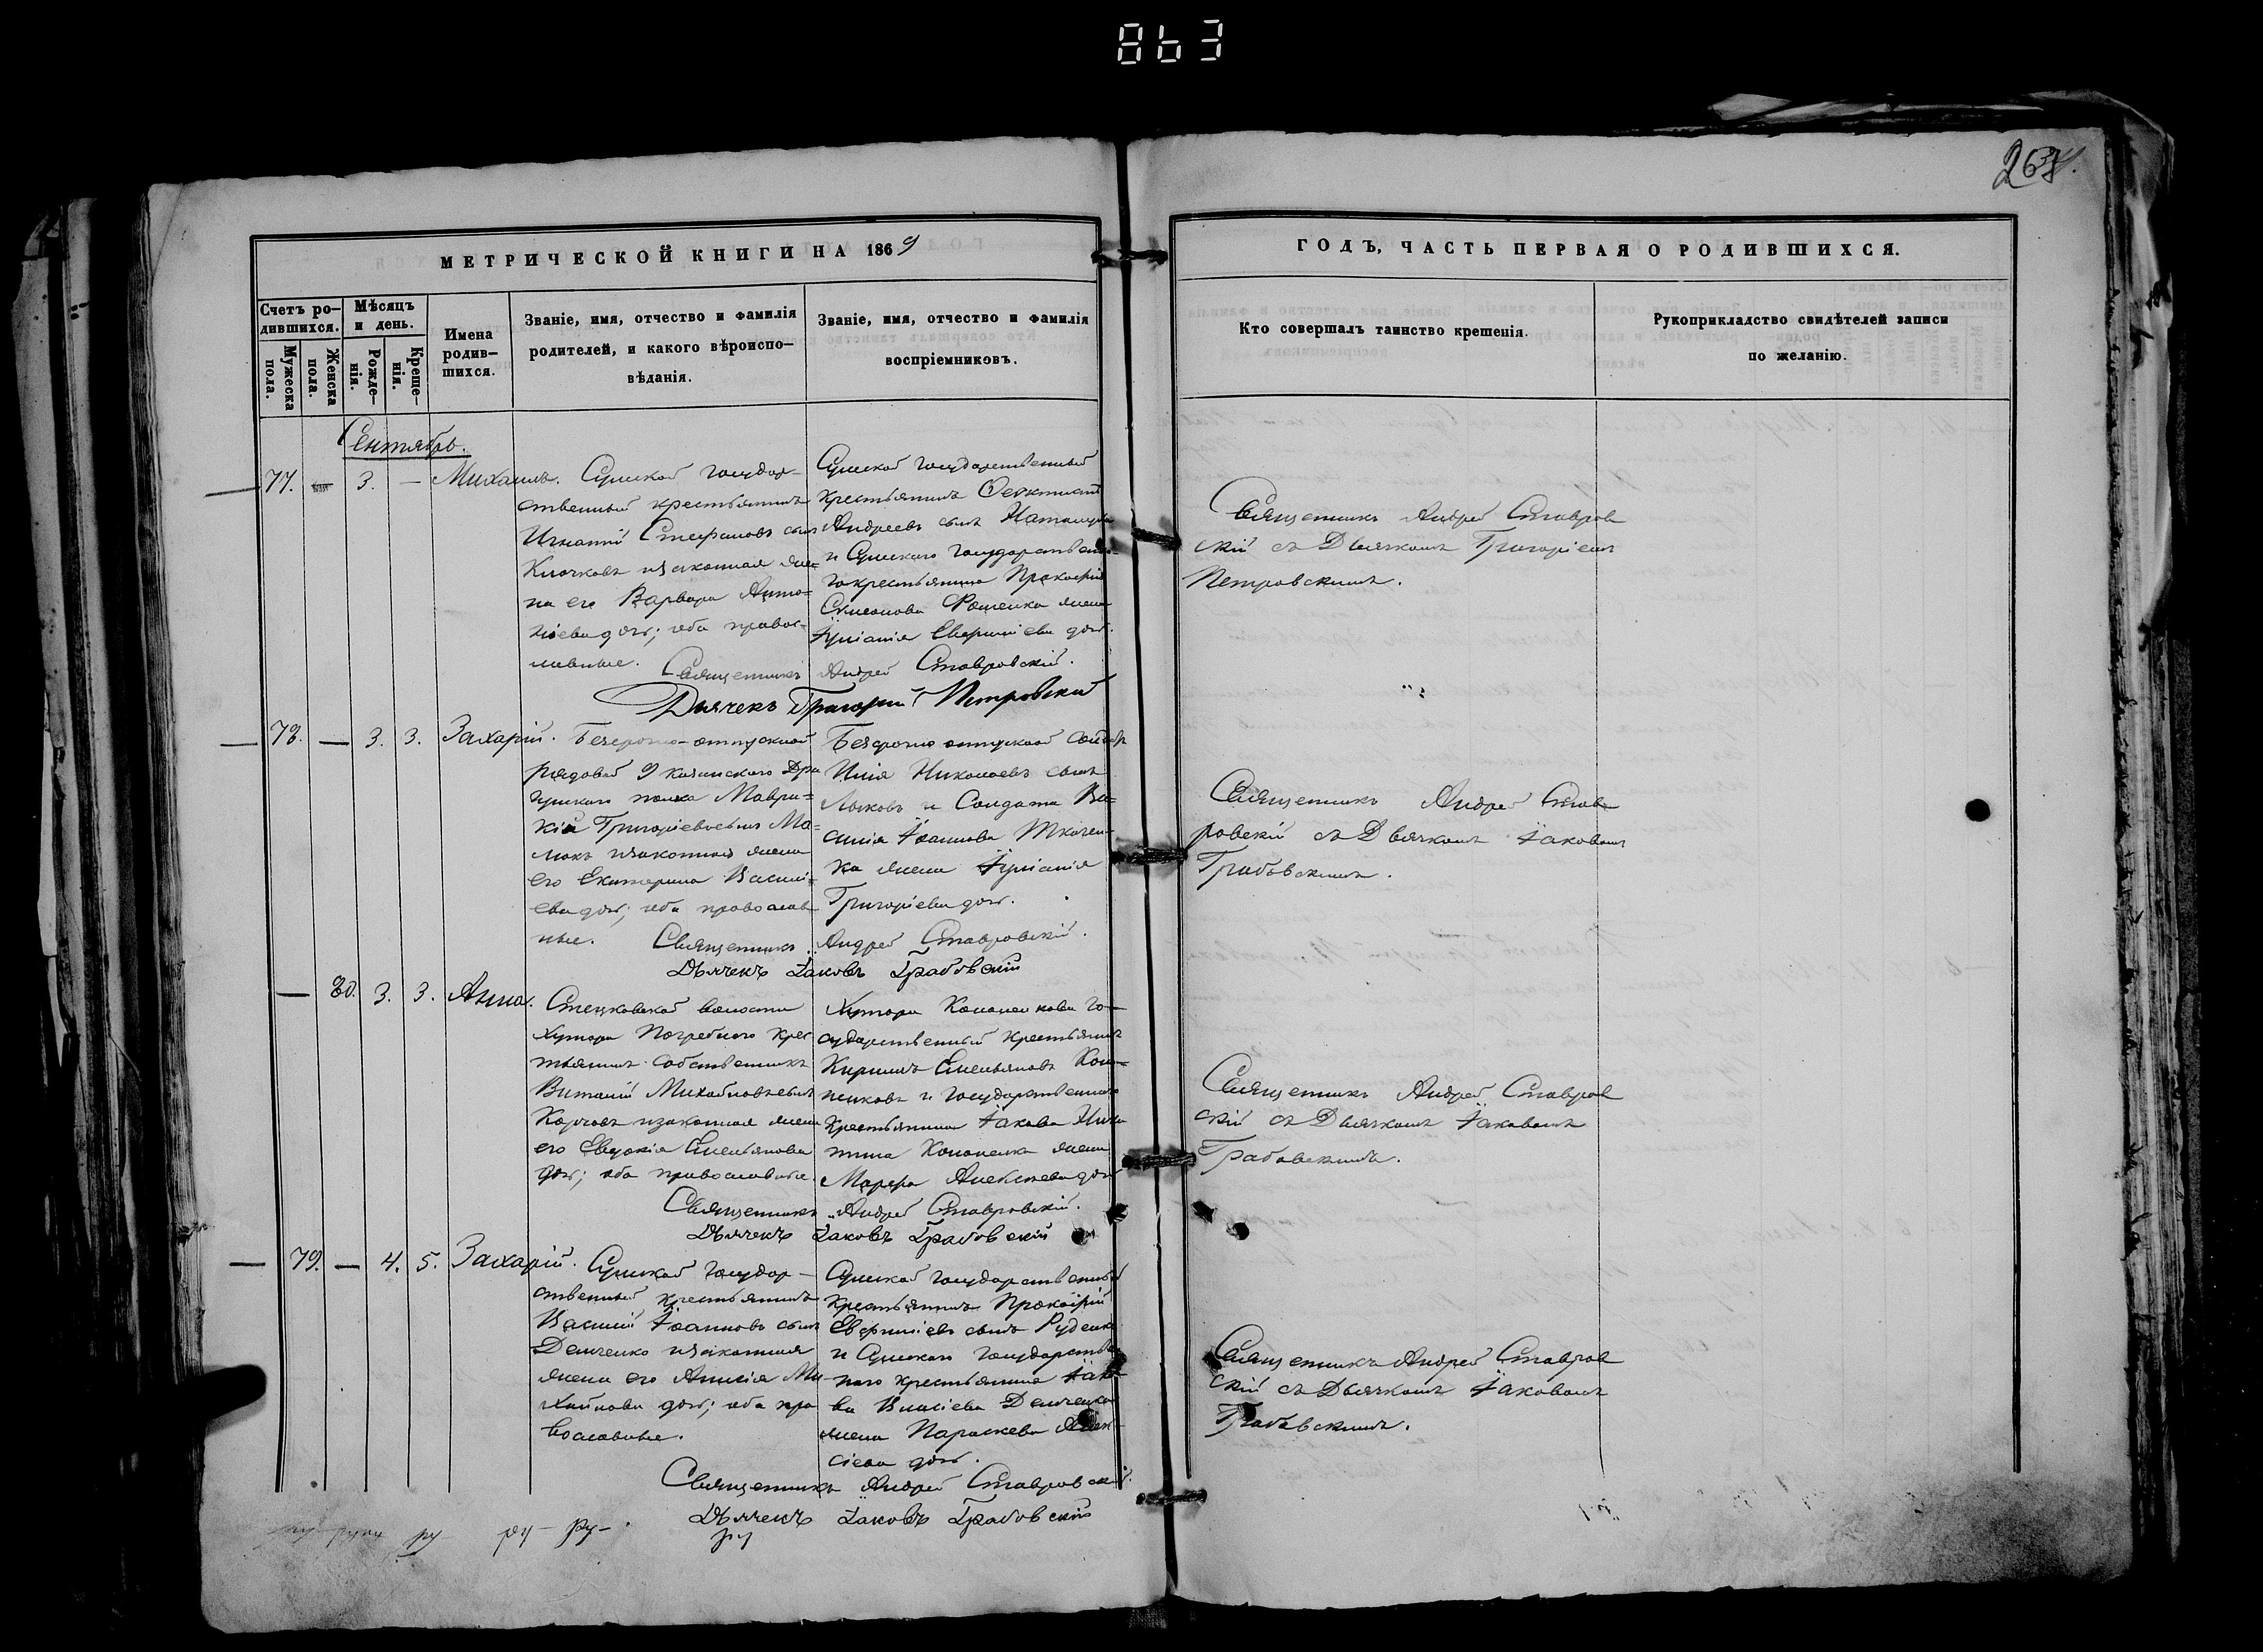 863
263
МЕТРИЧЕСКОЙ КНИГИ НА 1869
ГОДЪ, ЧАСТЬ ПЕРВАЯ О РОДИВШИХСЯ.
Счетъ ро-
дившихся.
Мужеска
пола.
Женска
пола.
Мѣсяцъ
и день.
Рожде-
нія.
Креще-
нія.
Имена
родив-
шихся.
Званіе, имя, отчество и фамилія
родителей, и какого вѣроиспо-
вѣданія.
Званіе, имя, отчество и фамилія
воспріемниковъ.
Кто совершалъ таинство крещенія.
Рукоприкладство свидѣтелей записи
по желанію.
Сентябрь.
77. — 3. — Михаилъ.
Сумской государ-
ственный крестьянинъ
Игнатій Стефановъ сынъ
Клочковъ и законная же-
на его Варвара Анто-
ніева дочь; оба правос-
лавные.
Сумской государственный
крестьянинъ Феоктистъ
Андреевъ сынъ
и Сумскаго государствен-
го крестьянина Прокофія
Симонова жена
Іуліанія Евфиміева дочь.
Священникъ Андрей Ставровскій.
Дьячекъ Григорій Петровскій
Священникъ Андрей Ставров
скій съ Дьячкомъ Григоріемъ
Петровскимъ.
78. — 3. 3. Захарій.
Безсрочно-отпускной
рядовой 9 Казанскаго Дра
гунскаго полка Маври-
кій Григоріевъ сынъ Ма-
люкъ и законная жена
его Екатерина Васили-
ева дочь; оба православ
ные.
Безсрочно отпускной
Илія Николаевъ сынъ
Лыковъ и Солдата Ва-
силія Іоаннова Ткачен-
ка жена Іуліанія
Григоріева дочь.
Священникъ Андрей Ставровскій.
Дьячекъ Іаковъ Грабовскій
Священникъ Андрей Ставв
ровскій съ Дьячкомъ Іаковомъ
Грабовскимъ.
— 80. 3. 3. Анна.
Стецковской волости
Хутора Погребного крес
тьянинъ собственникъ
Виталій Михайловъ сынъ
Карповъ и законная жена
его Евдокія Емельянова
дочь; оба православные.
Хутора Кононенкова го-
сударственный крестьянинъ
Кириллъ Емельяновъ Коно-
ненковъ и государственнаго
крестьянина Іакова Ники
тина Кононенка жена
Марфа Алексѣева дочь
Священникъ Андрей Ставровскій.
Дьячекъ Іаковъ Грабовскій
Священникъ Андрей Ставров
скій съ Дьячкомъ Іаковомъ
Грабовскимъ.
79. — 4. 5. Захарій.
Сумской государ-
ственный крестьянинъ
Василій Іоанновъ сынъ
Демченко и законная
жена его Анисія Ми-
хайлова дочь; оба пра
вославные.
Сумской государственный
крестьянинъ Прокофій
Евфиміевъ сынъ Руденко
и Сумскаго государствен
наго крестьянина Іако-
ва Власіева Демченка
жена Параскева Алек-
сіева дочь.
Священникъ Андрей Ставровскій.
Дьячекъ Іаковъ Грабовскій
Священникъ Андрей Ставров
скій съ Дьячкомъ Іаковомъ
Грабовскимъ.
ру- ру- ру-
ру